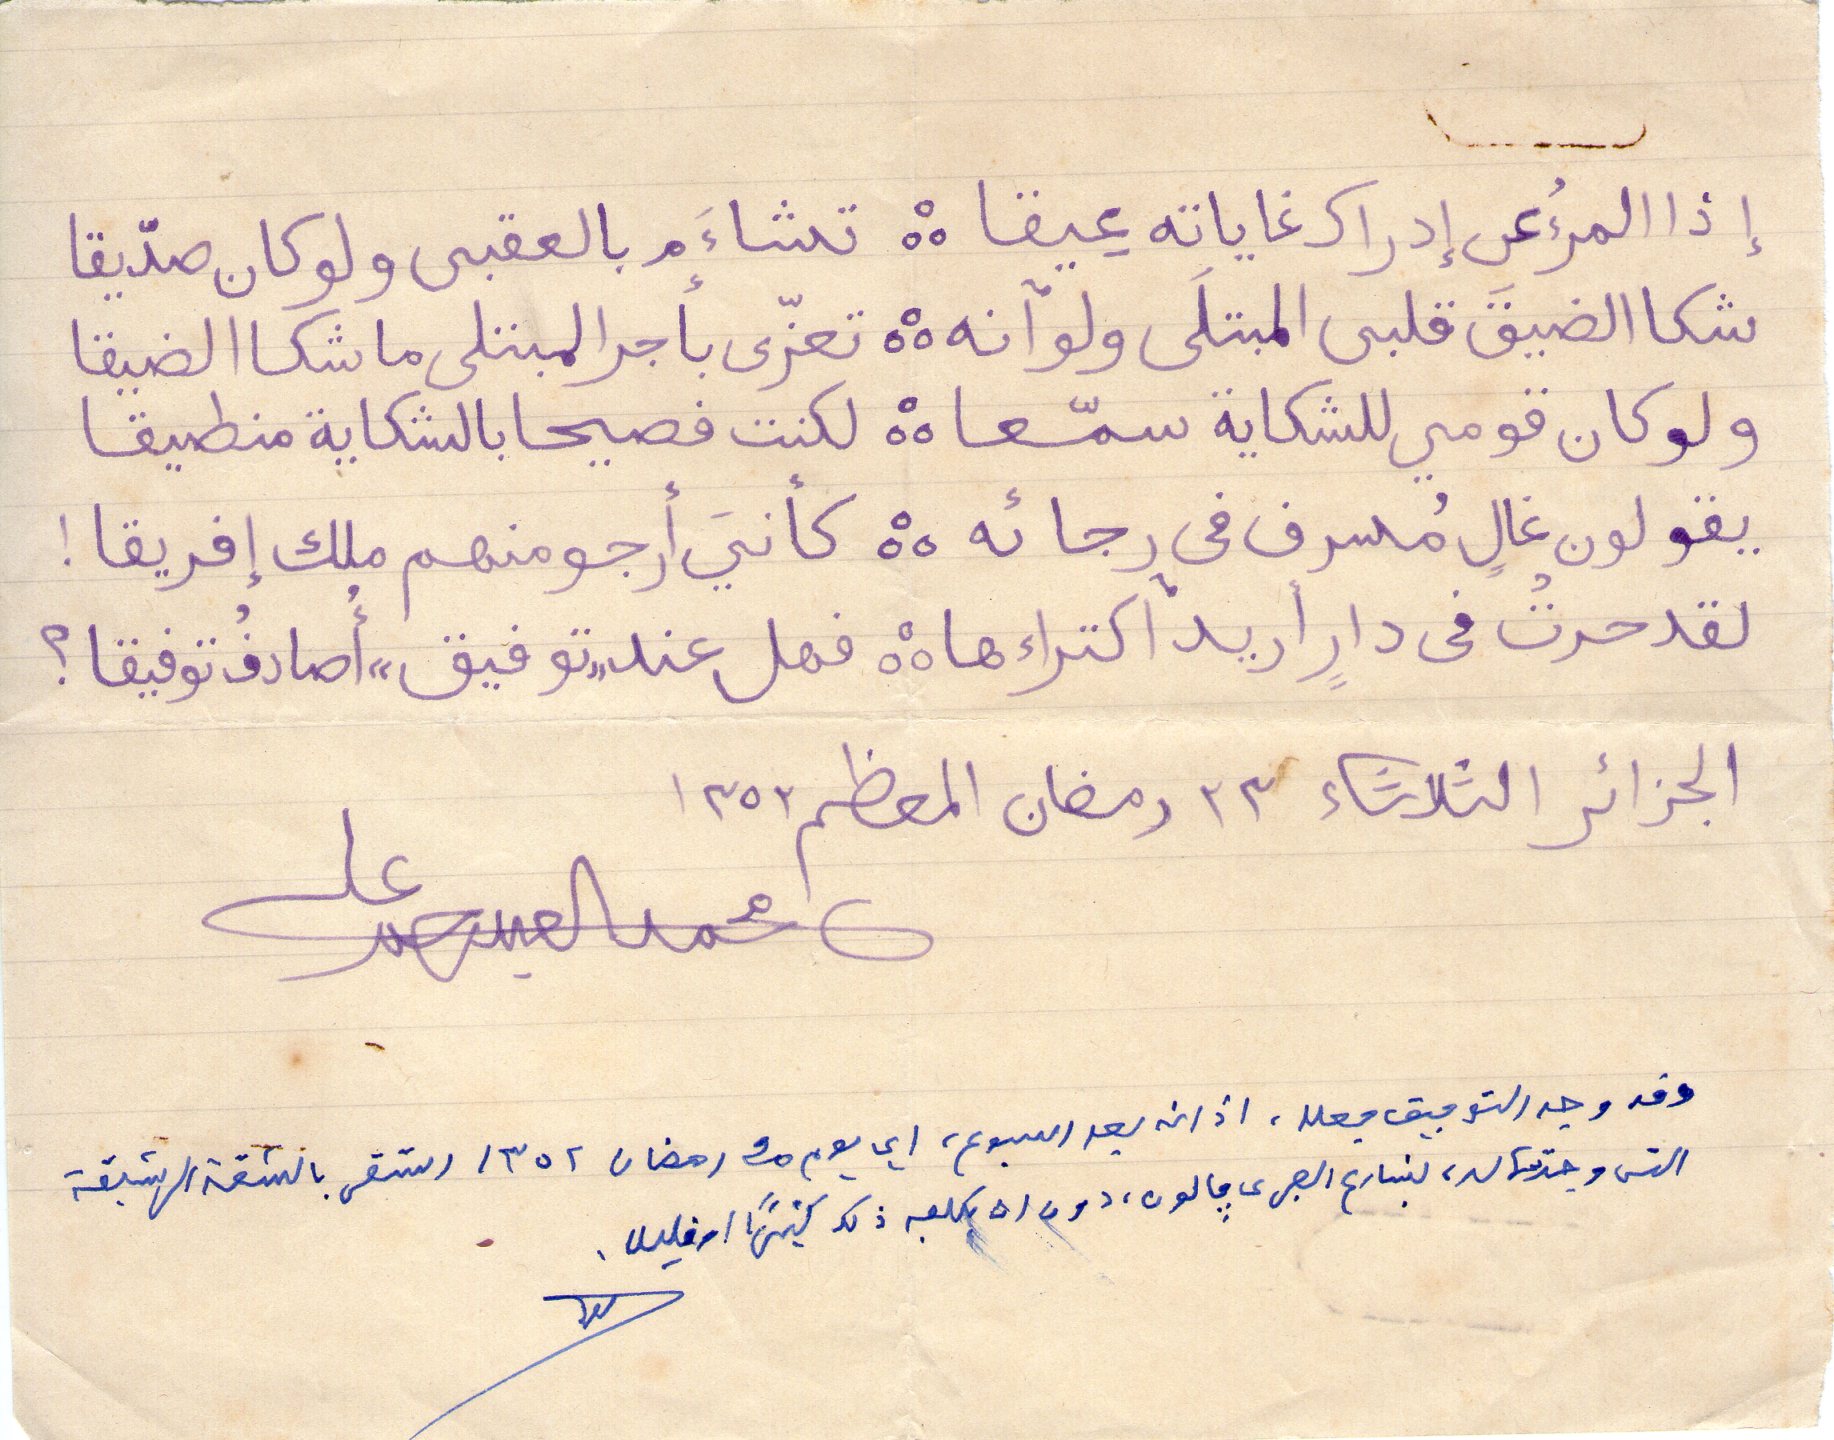 إذا المرءُ عن إدراك غاياته عيقا ه°ه تشاءَم بالعقبى ولو كان صدّيقا
شكا الضيقَ قلبى المبتلَى ولو آنه ه°ه تعزّى بأجر المبتلى ما شكا الضيقا
ولو كان قومي للشكاية سمّعا ه°ه لكنت فصيحا بالشكاية منطيقا
يقولون غالٍ مُسرف فى رجائه ه°ه كأنيَ أرجو منهم مُلك إفريقا !
لقد حرتُ فى دارٍ أريد آكتراءها ه°ه فهل عند „توفيق“ أُصادفُ توفيقا ؟
الجزائر الثلاثاء ٢٣ رمضان المعظم ١٣٥٢
محمد العيد حم علي
وقد وجد التوفيق فعلا، اذ انه بعد اسبوع، اي يوم رمضان ١٣٥٢ استقر بالشقة
التى وجدتها له، بشارع، دون ان يكلفه ذلك كثيرًا او قليلا.